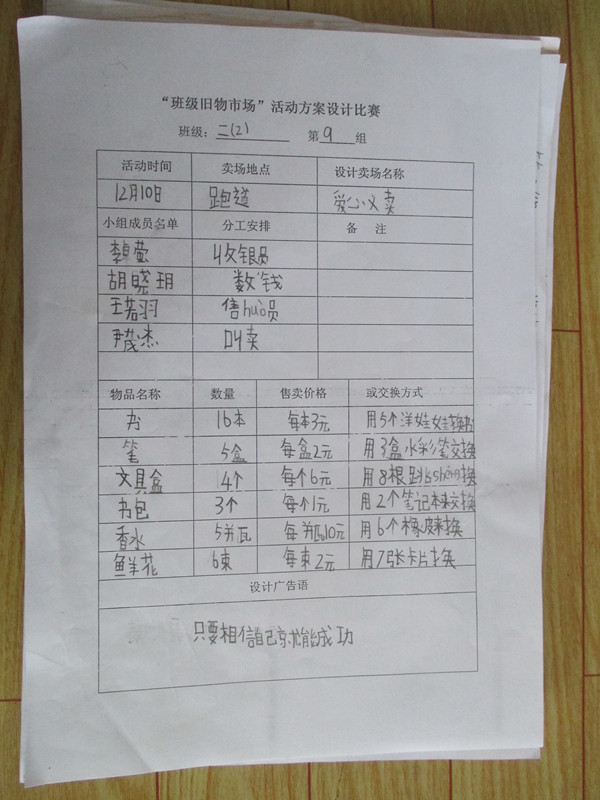 “班级旧物市场”活动方案设计比赛
班级：二(2) 第9组
活动时间 卖场地点 设计卖场名称
12月10日 跑道 爱心义卖
小组成员名单 分工安排 备 注
李卓萤 收银员
胡晓玥 数钱
王若羽 售huò员
尹茂杰 叫卖
物品名称 数量 售卖价格 或交换方式
书 16本 每本3元 用5个洋娃娃换
笔 5盒 每盒2元 用3盒水彩笔交换
文具盒 4个 每个6元 用8根跳shéng换
书包 3个 每个1元 用2个笔记本来交换
香水 5瓶 每瓶10元 用6个橡皮来换
鲜花 6束 每束2元 用7张卡片换
设计广告语
只要相信自己就能成功